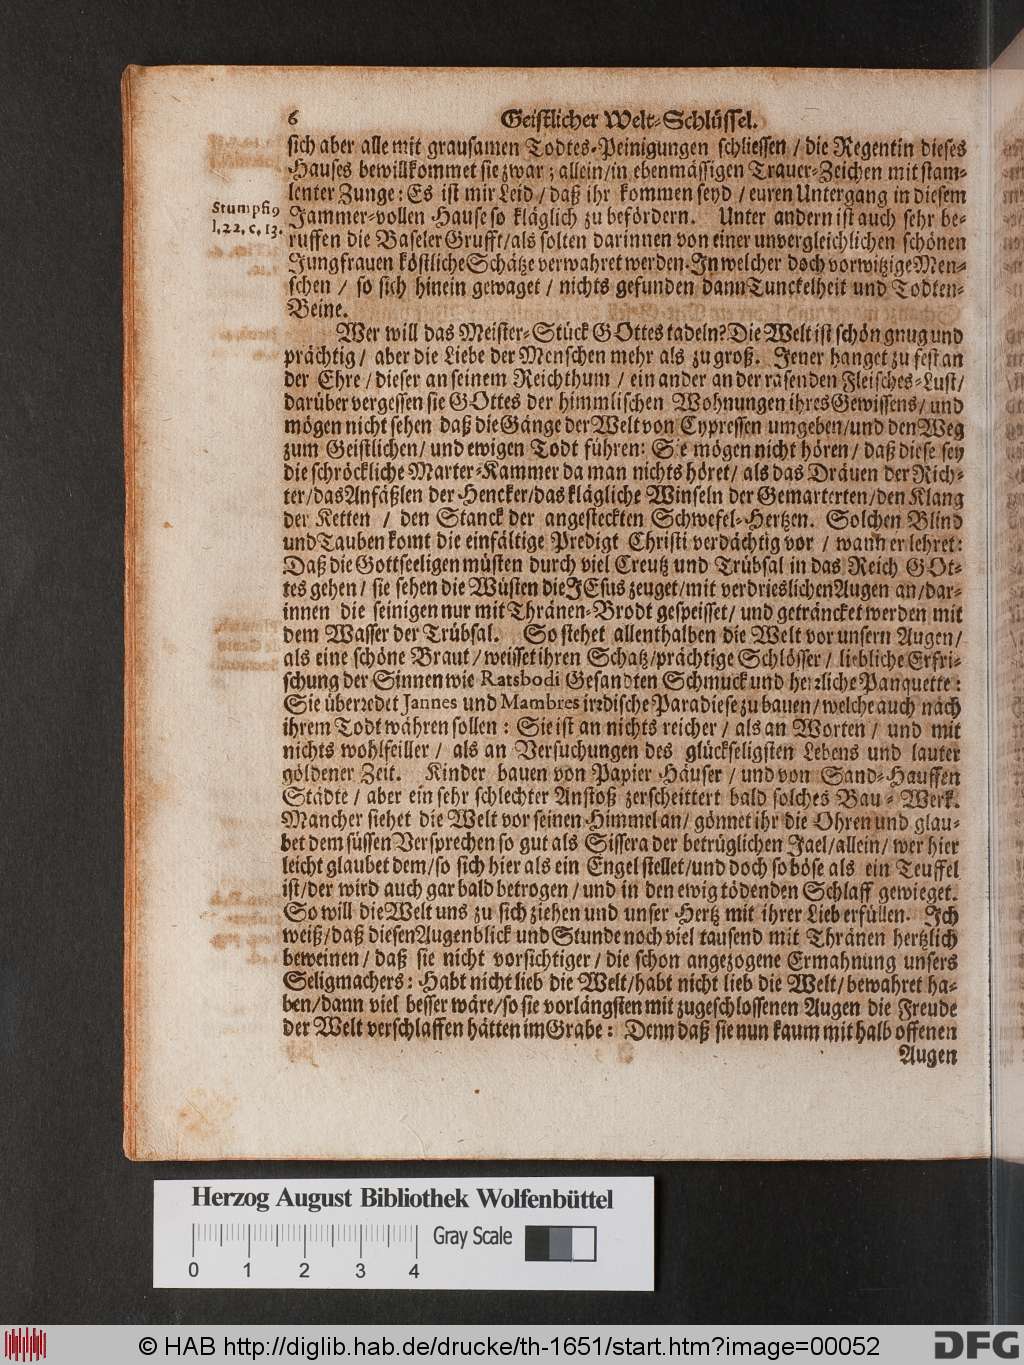 6 Geistlicher Welt-Schlüssel.
sich aber alle mit grausamen Todtes-Peinigungen schliessen / die Regentin dieses
Hauses bewillkommet sie zwar ; allein/in ebenmässigen Trauer-Zeichen mit stam-
lenter Zunge: Es ist mir Leid / daß ihr kommen seyd / euren Untergang in diesem
Stumpfig
l. 22. c. 13.
Jammer-vollen Hause so kläglich zu befördern. Unter andern ist auch sehr be-
ruffen die Baseler Grufft/als solten darinnen von einer unvergleichlichen schönen
Jungfrauen köstliche Schätze verwahret werden. In welcher doch vorwitzige Men-
schen / so sich hinein gewaget / nichts gefunden dann Tunckelheit und Todten-
Beine.
Wer will das Meister-Stück GOttes tadeln? Die Welt ist schön gnug und
prächtig / aber die Liebe der Menschen mehr als zu groß. Jener hanget zu fest an
der Ehre / dieser an seinem Reichthum / ein ander an der rasenden Fleisches-Lust/
darüber vergessen sie GOttes der himmlischen Wohnungen ihres Gewissens/ und
mögen nicht sehen daß die Gänge der Welt von Cypressen umgeben/und den Weg
zum Geistlichen/ und ewigen Todt führen: Sie mögen nicht hören / daß diese sey
die schröckliche Marter-Kammer da man nichts höret/ als das Dräuen der Rich-
ter/das Anfäßlen der Hencker/das klägliche Winseln der Gemarterten/den Klang
der Ketten / den Stanck der angesteckten Schwefel-Hertzen. Solchen Blind
und Tauben komt die einfältige Predigt Christi verdächtig vor / wann er lehret:
Daß die Gottseeligen müsten durch viel Creutz und Trübsal in das Reich GOt-
tes gehen/ sie sehen die Wüsten die JEsus zeuget/mit verdrieslichen Augen an/dar-
innen die seinigen nur mit Thränen-Brodt gespeisset/ und geträncket werden mit
dem Wasser der Trübsal. So stehet allenthalben die Welt vor unsern Augen/
als eine schöne Braut/weisset ihren Schatz/prächtige Schlösser / liebliche Erfri-
schung der Sinnen wie Ratsbodi Gesandten Schmuck und herrliche Panquette:
Sie überredet Jannes und Mambres irrdische Paradiese zu bauen/welche auch nach
ihrem Todt währen sollen : Sie ist an nichts reicher / als an Worten / und mit
nichts wohlfeiller / als an Versuchungen des glückseligsten Lebens und lauter
göldener Zeit. Kinder bauen von Papier Häuser / und von Sand-Hauffen
Städte / aber ein sehr schlechter Anstoß zerscheittert bald solches Bau-Werk.
Mancher siehet die Welt vor seinen Himmel an/ gönnet ihr die Ohren und glau-
bet dem süssen Versprechen so gut als Sissera der betrüglichen Jael/allein/ wer hier
leicht glaubet dem/so sich hier als ein Engel stellet/und doch so böse als ein Teuffel
ist/der wird auch gar bald betrogen/und in den ewig tödenden Schlaff gewieget.
So will die Welt uns zu sich ziehen und unser Hertz mit ihrer Lieb erfüllen. Ich
weiß/daß diesen Augenblick und Stunde noch viel tausend mit Thränen hertzlich
beweinen / daß sie nicht vorsichtiger / die schon angezogene Ermahnung unsers
Seligmachers: Habt nicht lieb die Welt/habt nicht lieb die Welt/ bewahret ha-
ben/dann viel besser wäre/so sie vorlängsten mit zugeschlossenen Augen die Freude
der Welt verschlaffen hätten im Grabe: Denn daß sie nun kaum mit halb offenen
Augen
Herzog August Bibliothek Wolfenbüttel
0 1 2 3 4
Gray Scale
© HAB http://diglib.hab.de/drucke/th-1651/start.htm?image=00052
DFG